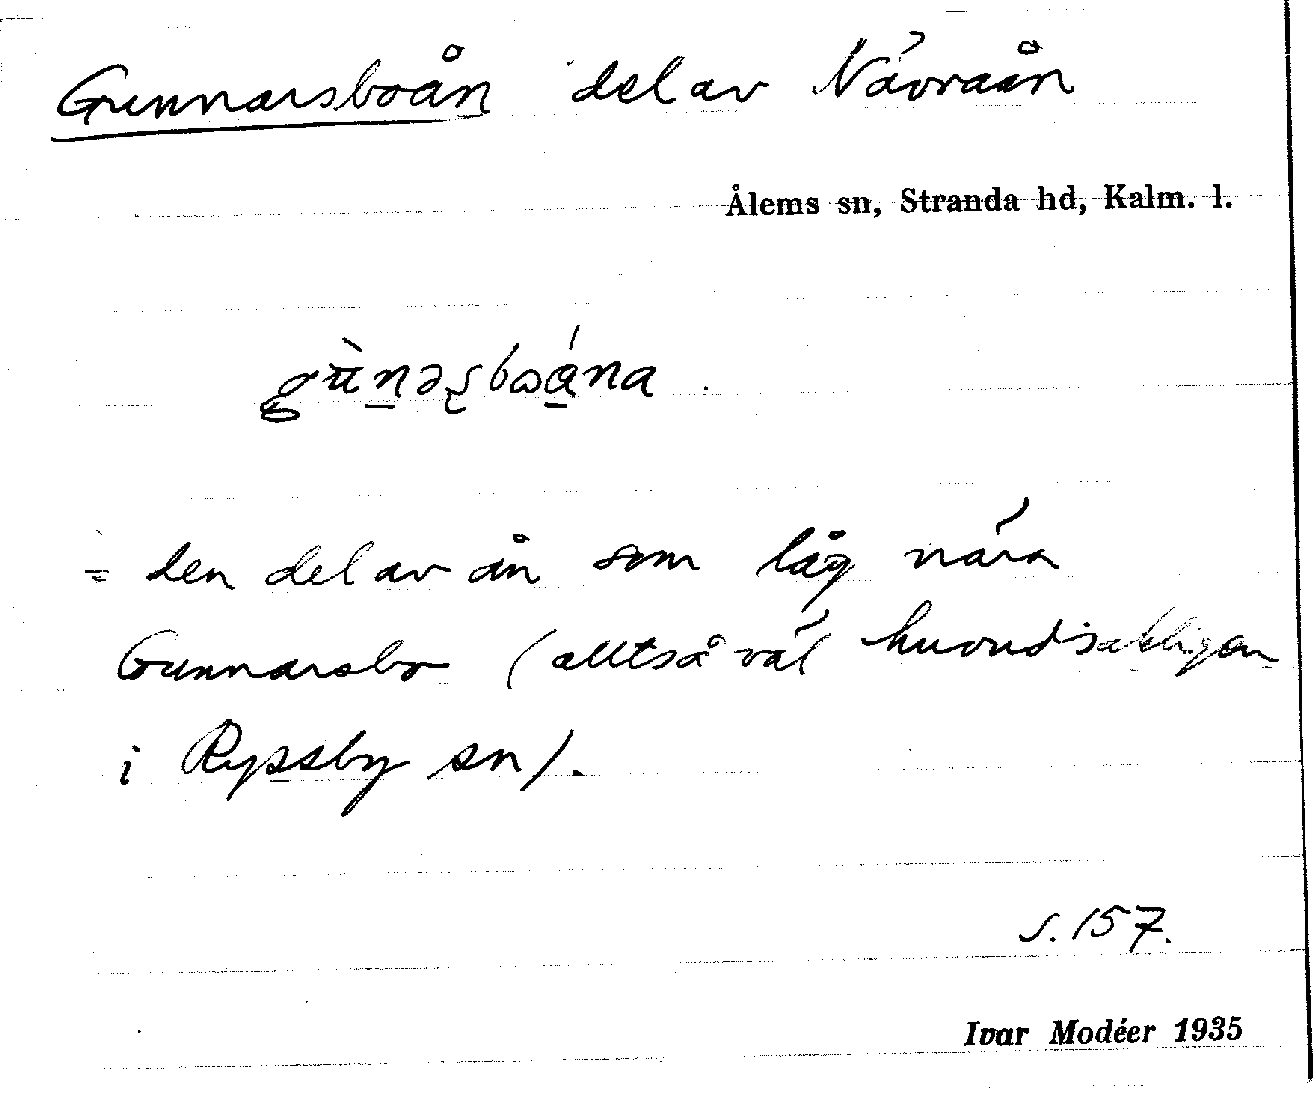 Gunnarsboån del av Nävraån
Ålems sn, Stranda hd, Kalm. l.
= den del av ån som låg nära
Gunnarsbo (alltså väl huvudsakligen
i Ryssby sn).
s. 157.
Ivar Modéer 1935